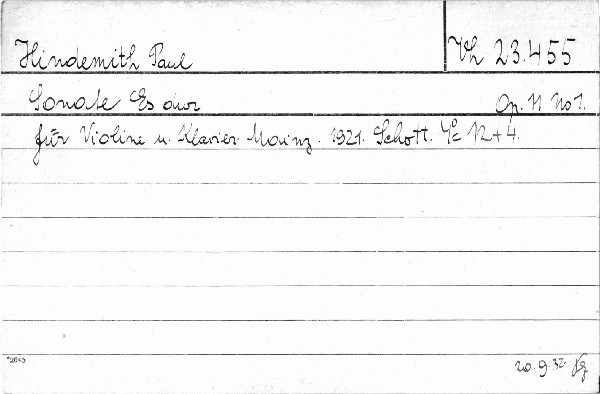 Hindemith Paul Vh 23.455
Sonate Es dur Op. 11 No 1.
für Violine u. Klavier. Mainz. 1921. Schott. 4º 12+4.
20.9.32